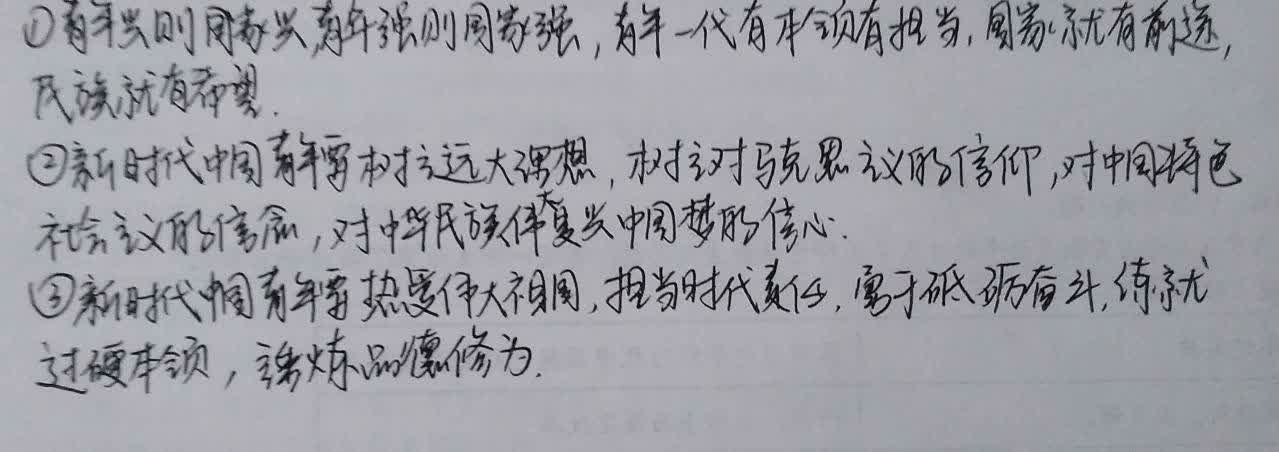 ①青年兴则国家兴,青年强则国家强,青年一代有本领有担当,国家就有前途,
民族就有希望.
②新时代中国青年要树立远大理想,树立对马克思主义的信仰,对中国特色
社会主义的信念,对中华民族伟大复兴中国梦的信心.
③新时代中国青年要热爱伟大祖国,担当时代责任,勇于砥砺奋斗,练就
过硬本领,锤炼品德修为.